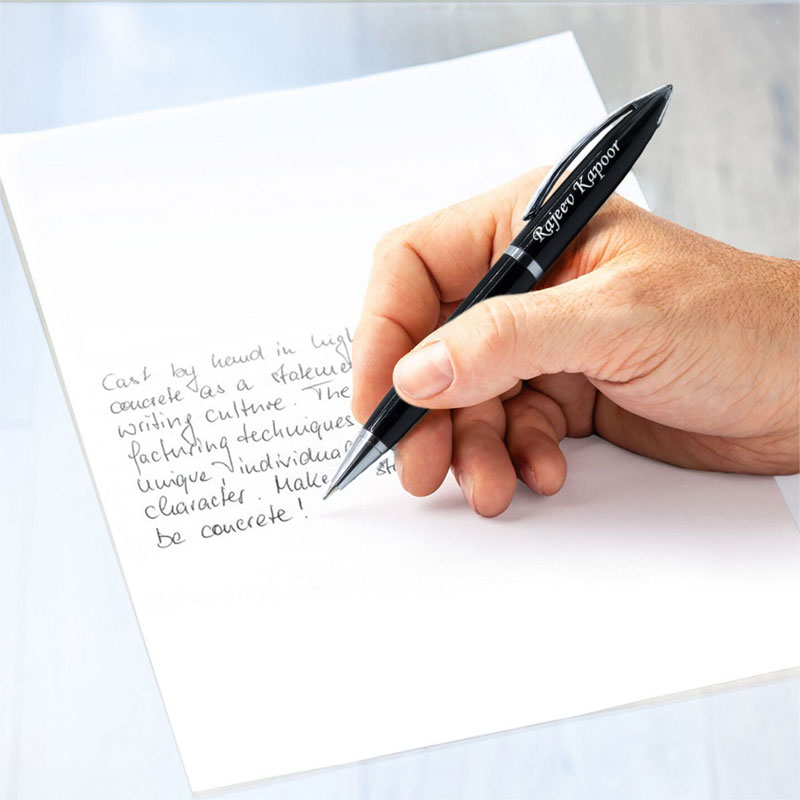 Rajeev Kapoor
Cast by hand in high
concrete as a statemen
writing culture. The
facturing techniques
unique, individual
character. Make sta
be concrete!